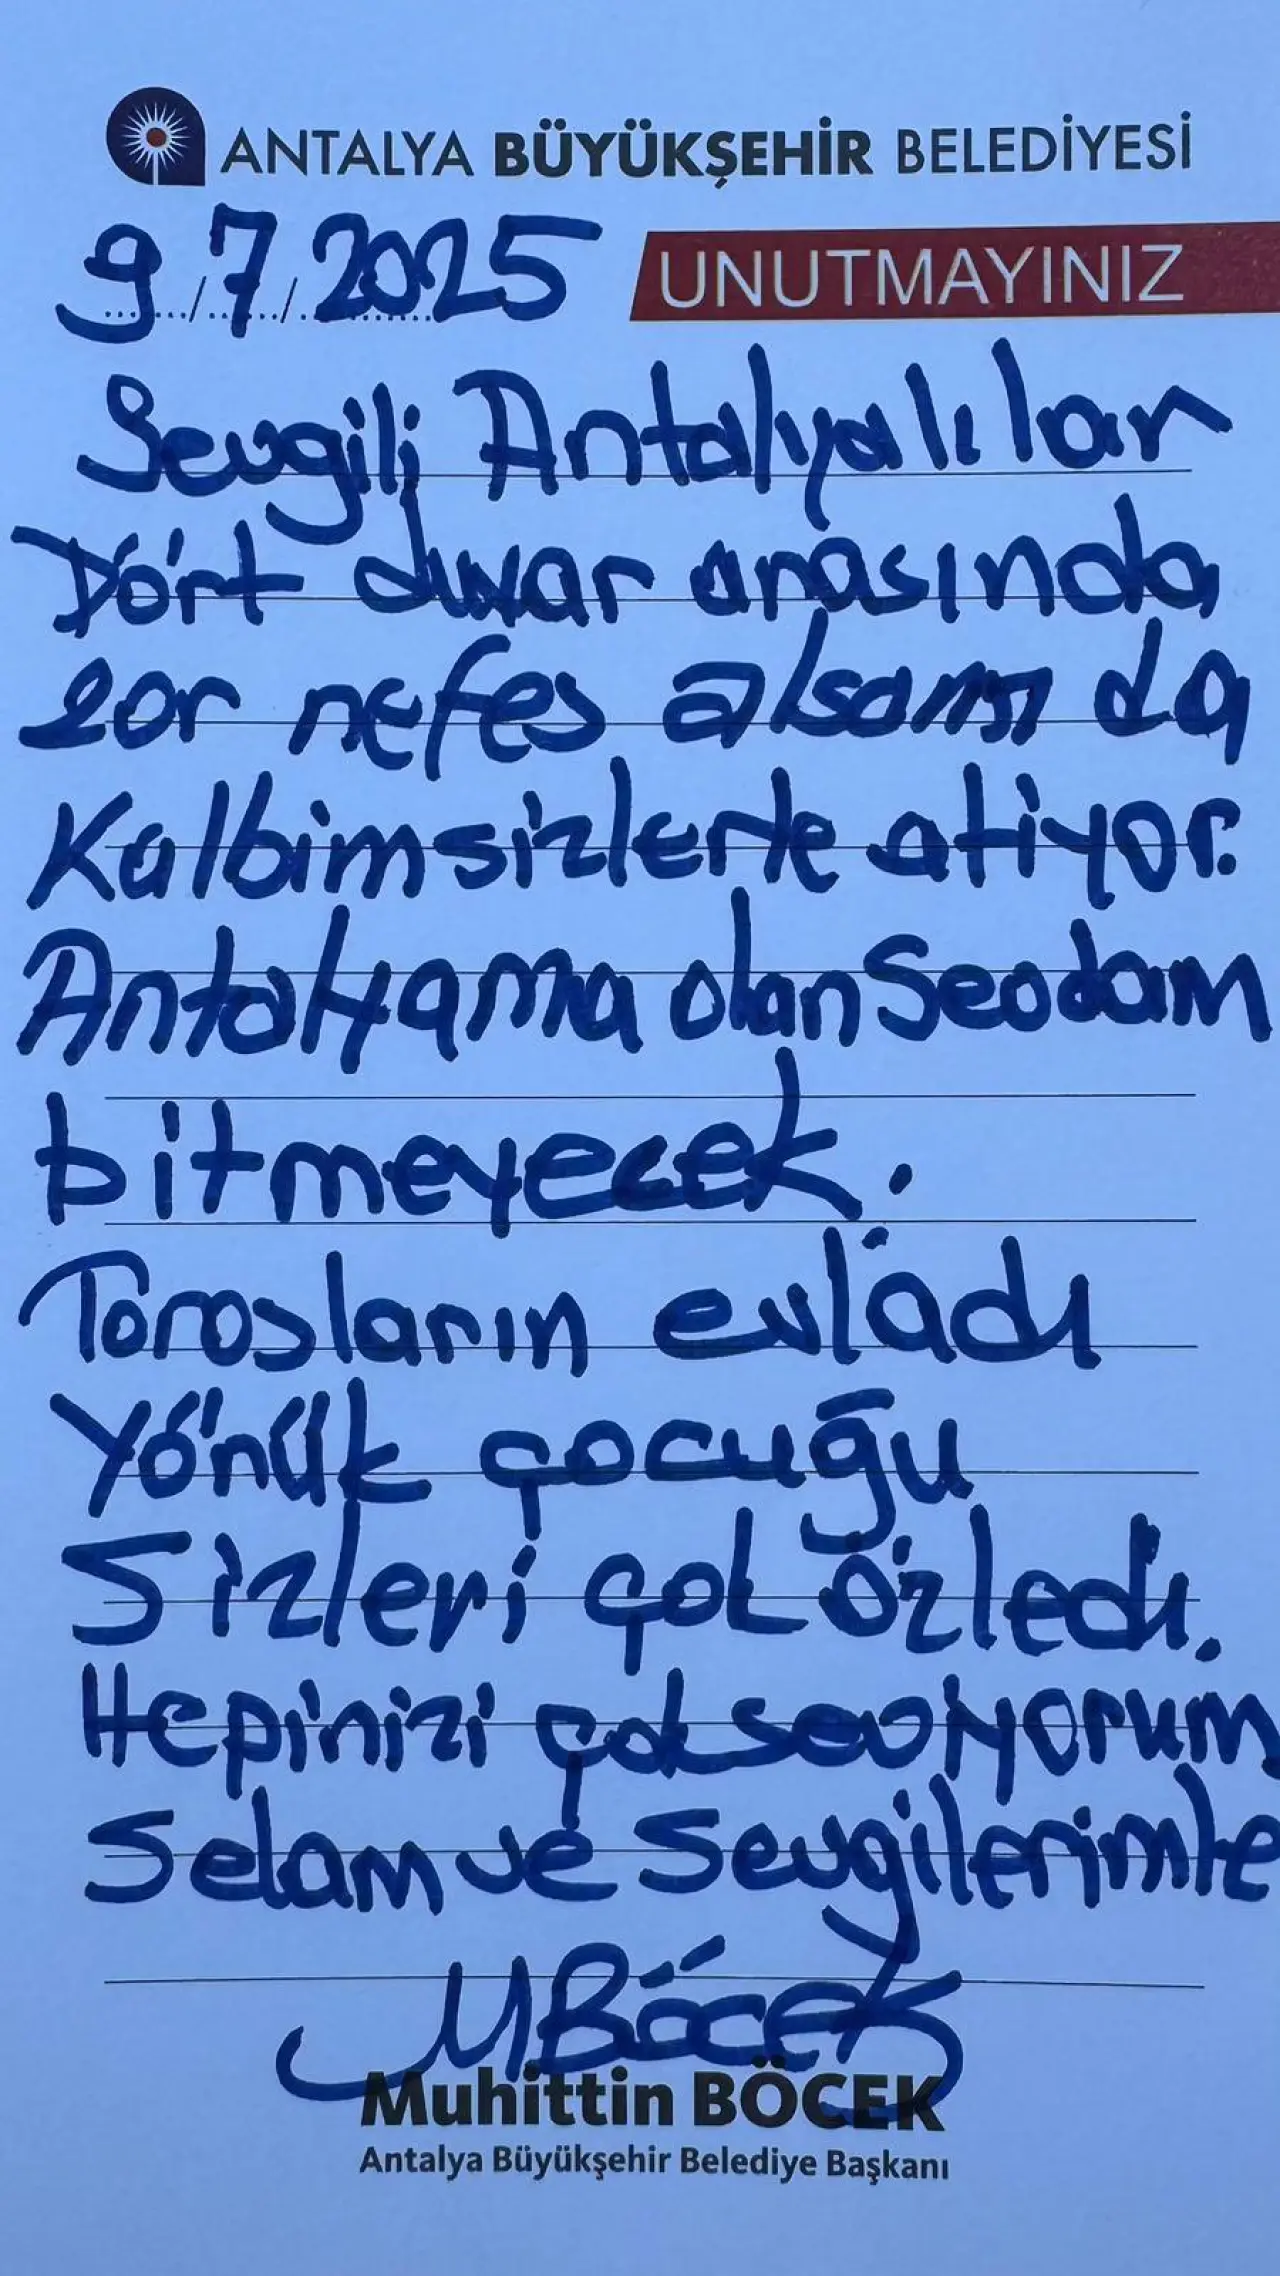 ANTALYA BÜYÜKŞEHİR BELEDİYESİ
9/7/2025 UNUTMAYINIZ
Sevgili Antalyalılar
Dört duvar arasında
zor nefes alsam da
Kalbim sizlerle atıyor.
Antalyama olan Sevdam
bitmeyecek.
Torosların evlâdı
Yörük çocuğu
Sizleri çok özledi.
Hepinizi çok seviyorum
Selam ve Sevgilerimle
MBöcek
Muhittin BÖCEK
Antalya Büyükşehir Belediye Başkanı